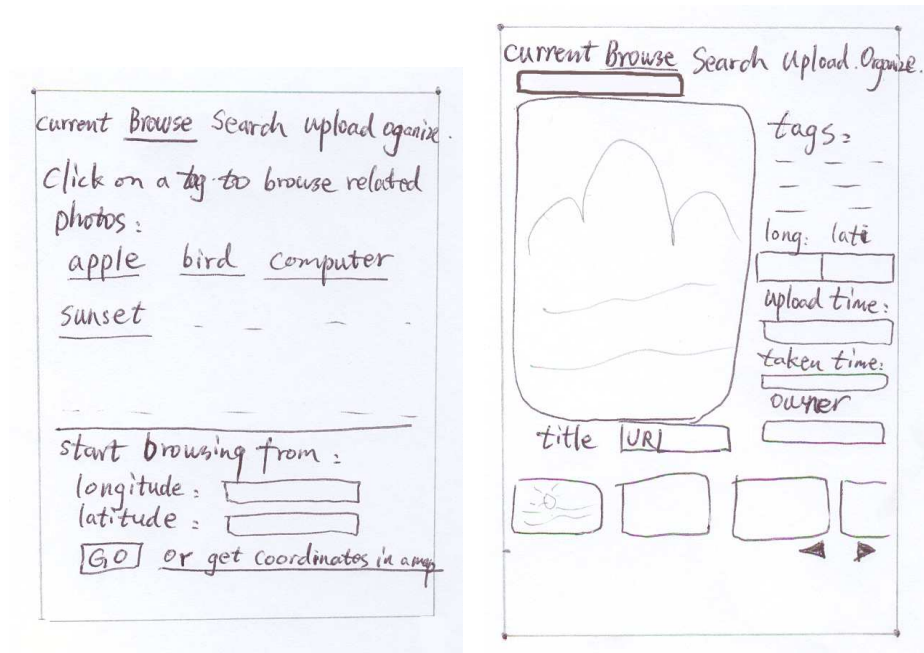 current Browse Search upload oganize.
Click on a tag to browse related
photos:
apple bird computer
sunset
start browsing from:
longitude:
latitude:
GO or get coordinates in a map
current Browse Search Upload. Organize.
tags:
long: lati
upload time:
taken time:
owner
title URL